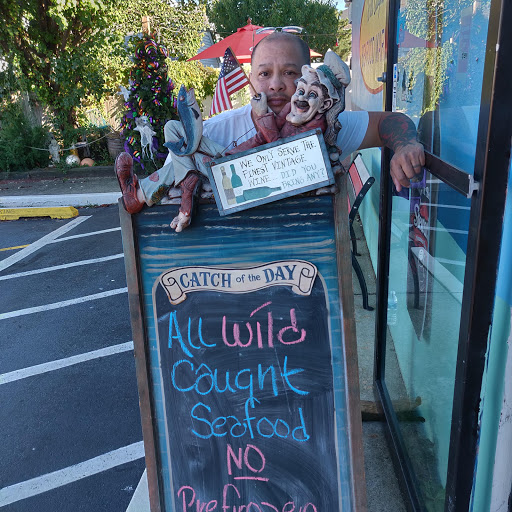 WE ONLY SERVE THE
FINEST VINTAGE
WINE. DID YOU
BRING ANY?
CATCH of the DAY
All Wild
Caught
Seafood
NO
Prefrozen